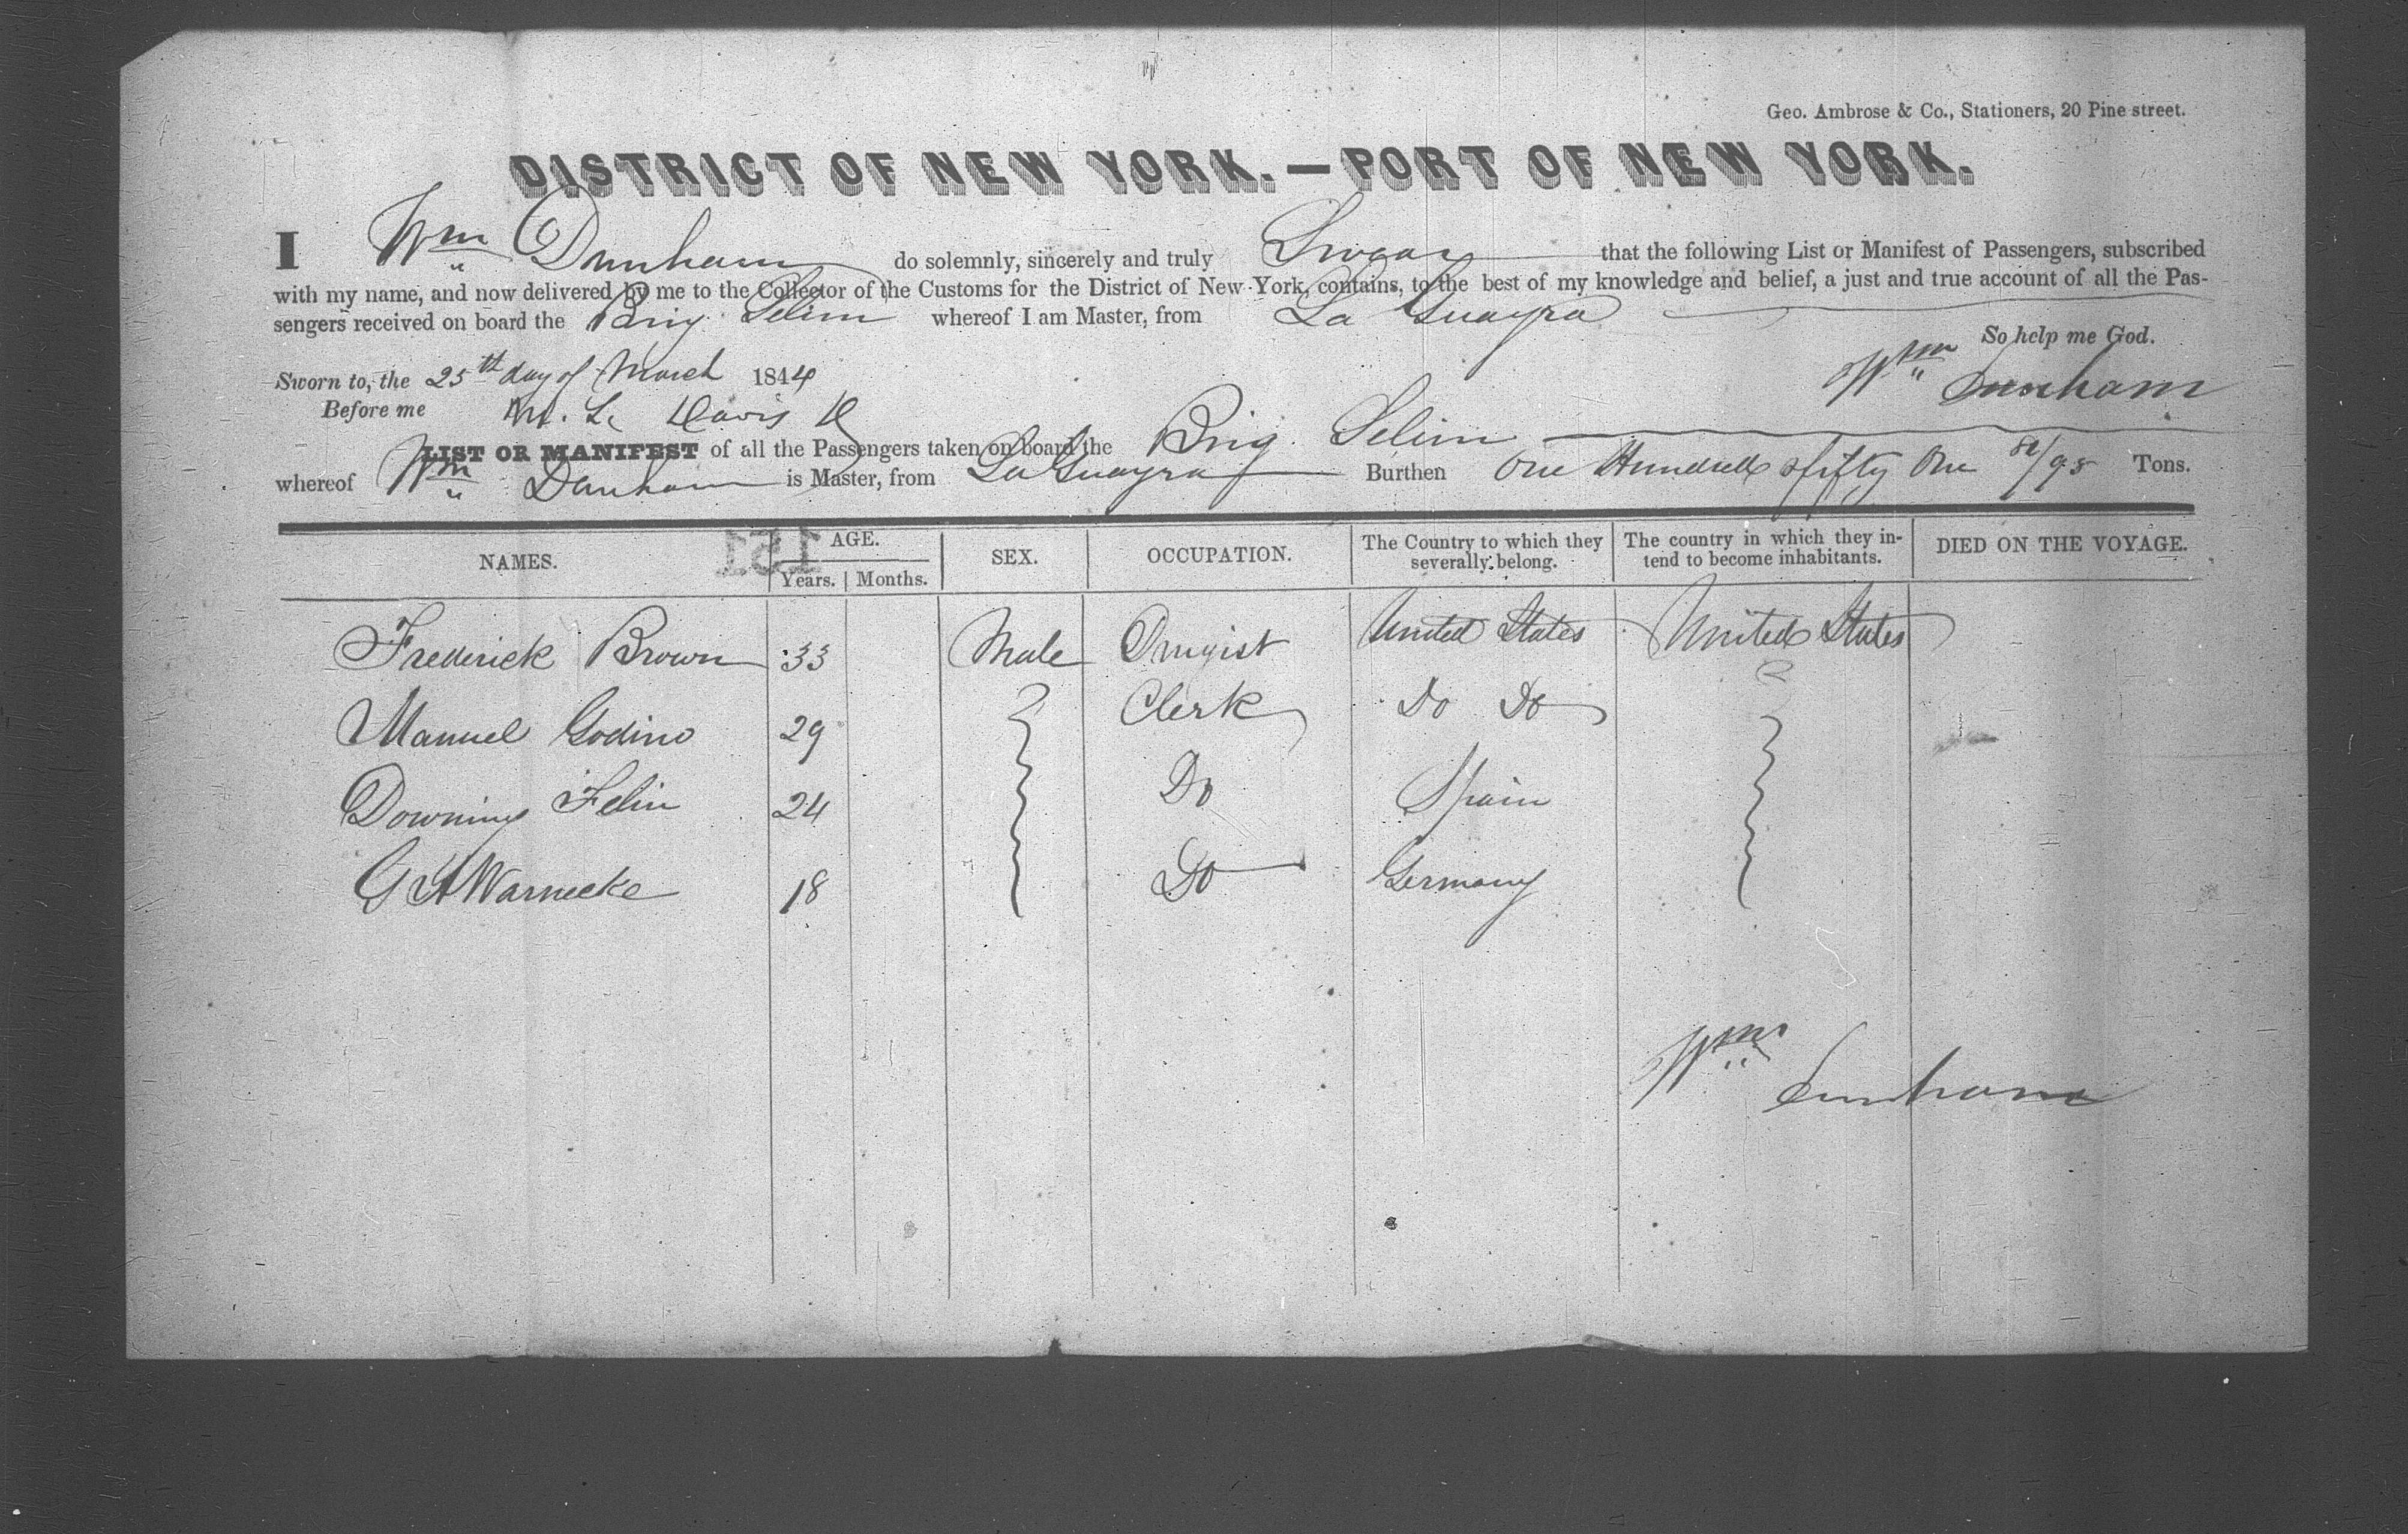 Geo. Ambrose & Co., Stationers, 20 Pine street.
DISTRICT OF NEW YORK.—PORT OF NEW YORK.
I Wm Dunham do solemnly, sincerely and truly Swear that the following List or Manifest of Passengers, subscribed
with my name, and now delivered by me to the Collector of the Customs for the District of New-York, contains, to the best of my knowledge and belief, a just and true account of all the Pas-
sengers received on board the Brig Selim whereof I am Master, from La Guayra
So help me God.
Sworn to, the 25th day of March 1844
Wm Dunham
Before me M. L. Davis
LIST OR MANIFEST of all the Passengers taken on board the Brig Selim
whereof Wm Dunham is Master, from La Guayra Burthen One Hundred & fifty One /95 Tons.
151
NAMES. AGE. Years. Months. SEX. OCCUPATION. The Country to which they severally belong. The country in which they in-tend to become inhabitants. DIED ON THE VOYAGE.
Frederick Brown 33 Male Drugist United States United States
Manuel Godino 29 Clerk Do Do
Downing Felin 24 Do Spain
G A Warnecke 18 Do Germany
Wm Dunham